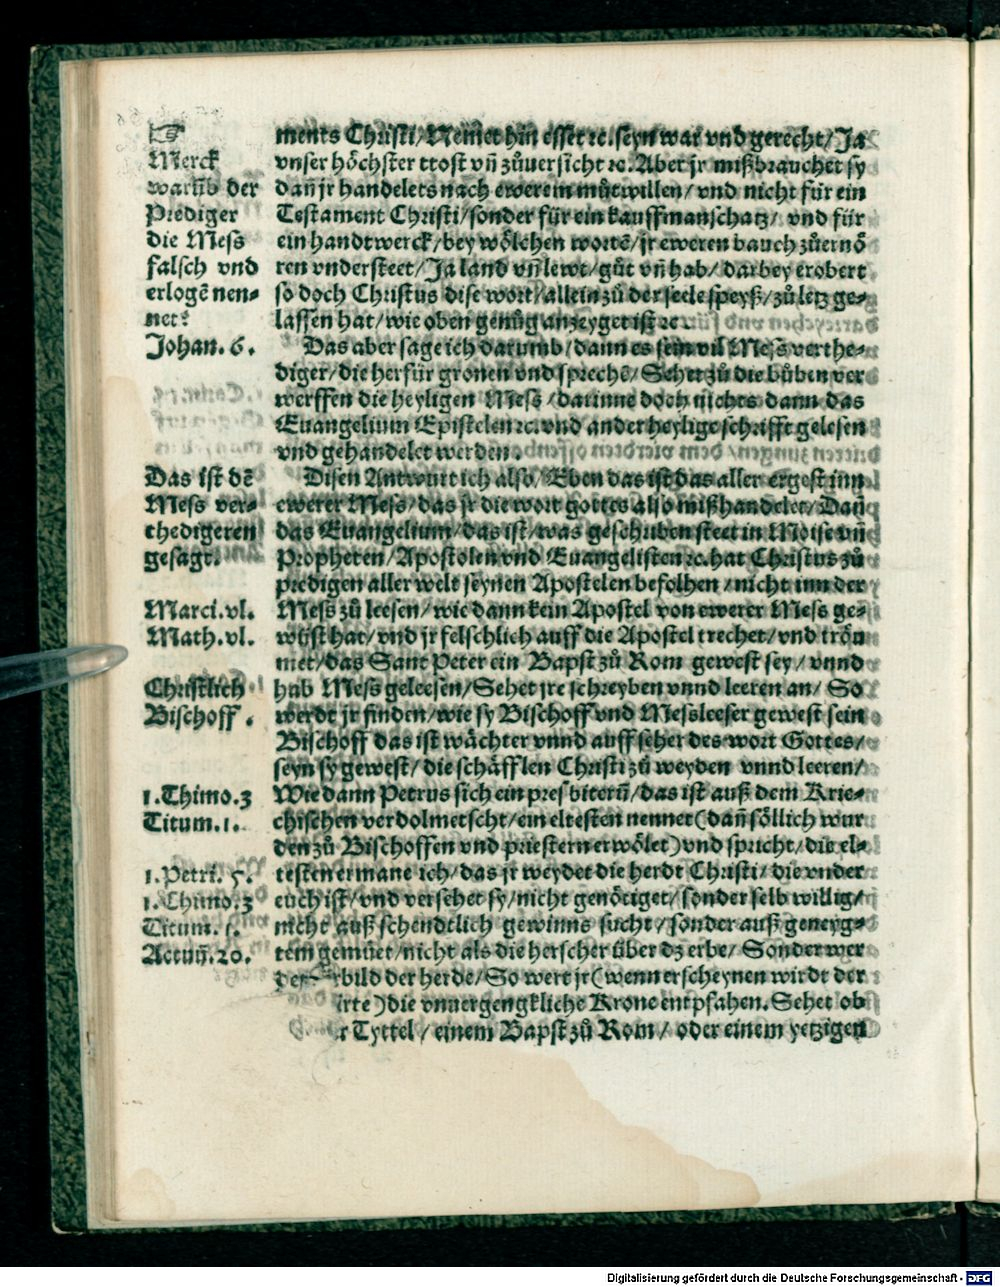 ☞
Merck
warūb der
Prediger
die Mess
falsch vnd
erlogē nen-
net?
Johan. 6.
Das ist dē
Mess ver-
thedigeren
gesagt.
Marci.vl.
Math.vl.
Christlich
Bischoff.
1.Thimo.3
Titum.1.
1.Petri. 5.
1.Thimo.3
Titum. 1.
Actuū.20.
ments Christi/Nemet hin esset ꝛc. seyn war vnd gerecht/Ja
vnser höchster trost vñ zůuersicht ꝛc. Aber jr mißbrauchet sy
dañ jr handelets nach ewerem můtwillen/ vnd nicht für ein
Testament Christi/sonder für ein kauffmanschatz/ vnd für
ein handtwerck/bey wölchen wortē/jr eweren bauch zůernö
ren vndersteet/Ja land vñ lewt/gůt vñ hab/ darbey erobert
so doch Christus dise wort/allein zů der seele speyß/zů letz ge-
lassen hat/wie oben genůg anzeyget ist ꝛc.
Das aber sage ich darumb/dann es sein vil Mess verthe-
diger/die herfür gronen vnd sprechē/Sehet zů die bůben ver
werffen die heyligen Mess/darinne doch nichts dann das
Euangelium Epistelen ꝛc. vnd ander heylige schrifft gelesen
vnd gehandelet werden.
Disen Antwurt ich also/Eben das ist das aller ergest inn
ewerer Mess/das jr die wort gottes also mißhandelet/Dañ
das Euangelium/das ist/was geschriben steet in Moise vñ
Propheten/Apostolen vnd Euangelisten ꝛc. hat Christus zů
predigen aller welt seynen Apostelen befolhen/nicht inn der
Mess zů leesen/wie dann kein Apostel von ewerer Mess ge-
wist hat/vnd jr felschlich auff die Apostel trechet/vnd tröu
met/das Sant Peter ein Bapst zů Rom gewest sey/vnnd
hab Mess geleesen/Sehet jre schreyben vnnd leeren an/ So
werdt jr finden/wie sy Bischoff vnd Messleeser gewest sein
Bischoff das ist wächter vnnd auff seher des wort Gottes/
seyn sy gewest/die schäfflen Christi zů weyden vnnd leeren/
Wie dann Petrus sich ein presbiterū/das ist auß dem Krie-
chischen verdolmetscht/ein eltesten nennet(dañ söllich wur
den zů Bischoffen vnd priestern erwölet)vnd spricht/die el-
testen ermane ich/das jr weydet die herdt Christi/die vnder
euch ist/vnd versehet sy/nicht genötiget/sonder selb willig/
nicht auß schendtlich gewinns sucht/sonder auß geneyg-
tem gemüet/nicht als die herscher über dz erbe/ Sonder wer
bild der herde/So wert jr(wenn erscheynen wirdt der
irte)die vnuergengkliche Krone entpfahen. Sehet ob
r Tyttel/einem Bapst zů Rom/ oder einem yetzigen
Digitalisierung gefördert durch die Deutsche Forschungsgemeinschaft - DFG